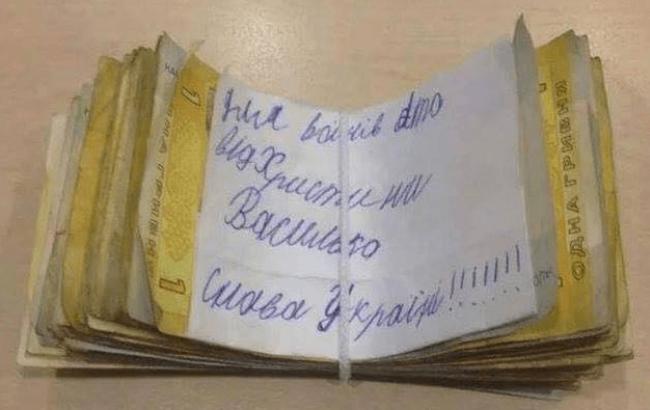 Для воїнів ато
від Христини
Василько
Слава Україні!!!!!!!!
1
1
ОДНА ГРИВНЯ
1